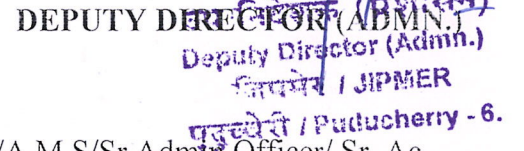 DEPUTY DIRECTOR (ADMN.)
उप निदेशक (प्रशासन)
Deputy Director (Admn.)
जिपमेर / JIPMER
पुदुच्चेरी / Puducherry - 6.
/A.M.S/Sr.Admin.Officer/ Sr. Ac